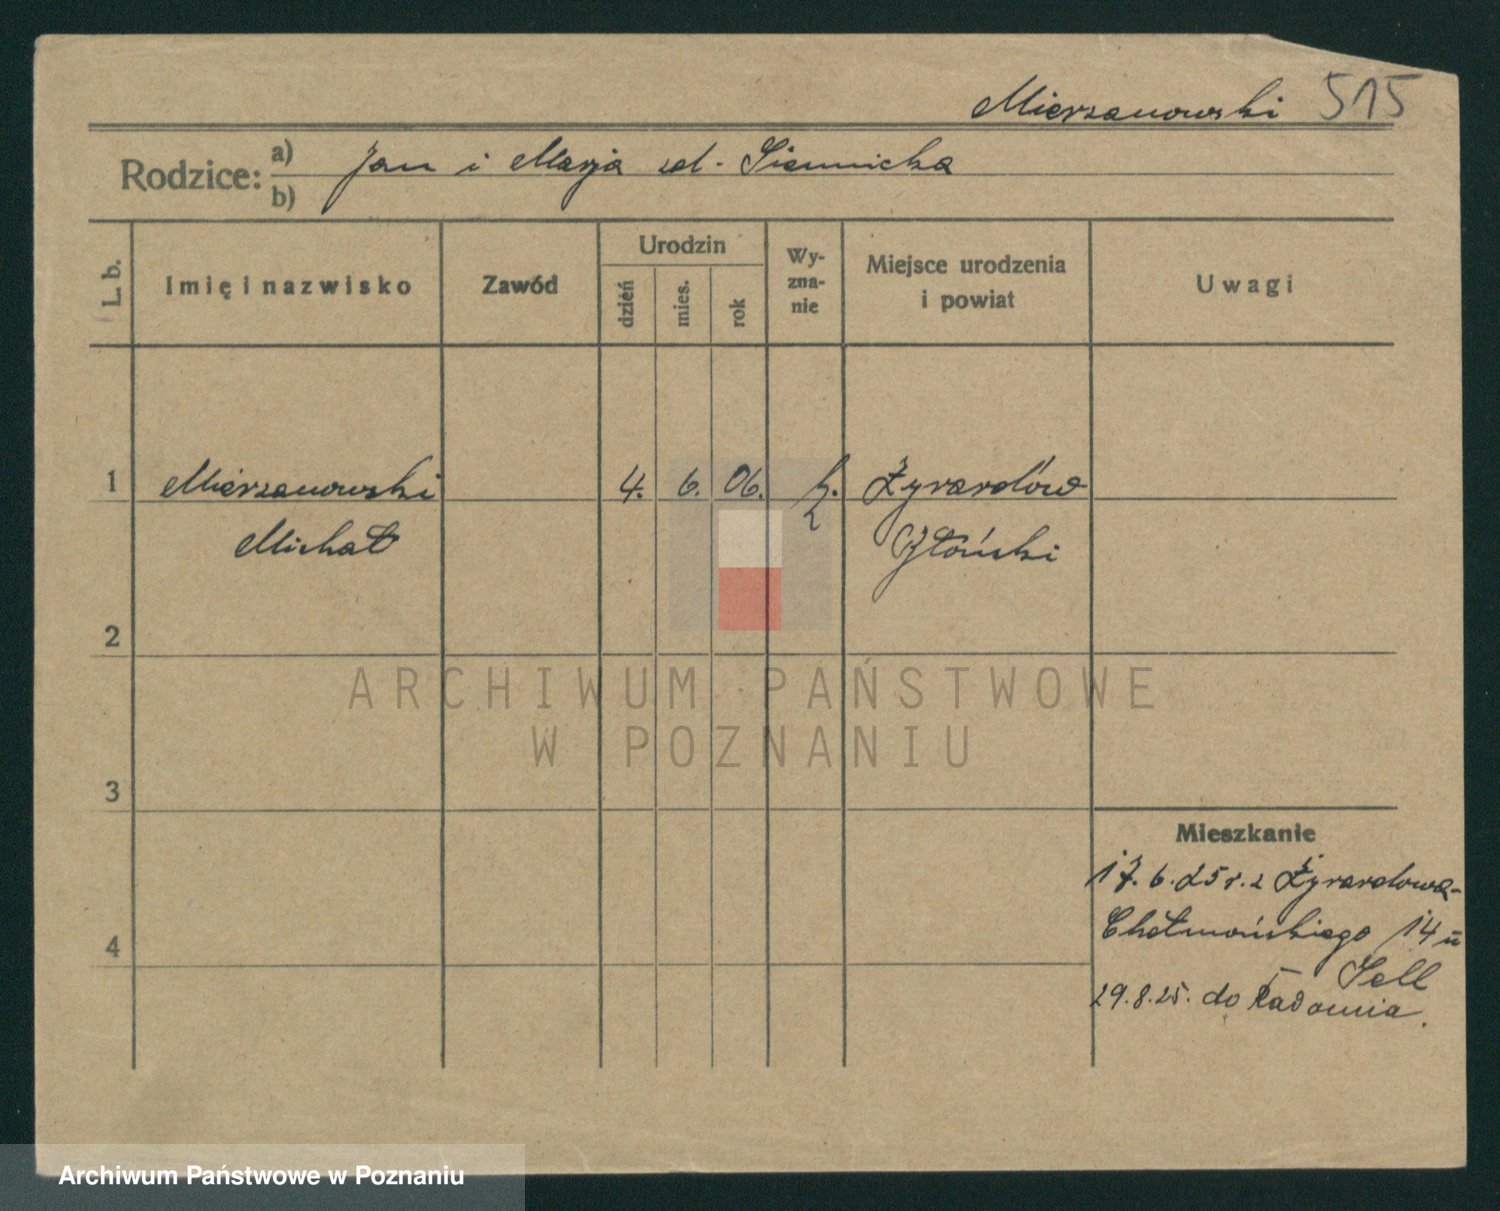 Mierzanowski 515
Rodzice: a) Jan i Marja zd. Siennicka
b)
L. b. Imię i nazwisko Zawód Urodzin dzień mies. rok Wy-zna-nie Miejsce urodzenia i powiat Uwagi
1 Mierzanowski 4. 6. 06. k. Żyrardów
Michał Błoński
2
ARCHIWUM PAŃSTWOWE
W POZNANIU
3
Mieszkanie
17.6.25 r. z Żyrardowa-
Chełmońskiego 14 u
4
Sell
29.8.25. do Radomia.
Archiwum Państwowe w Poznaniu